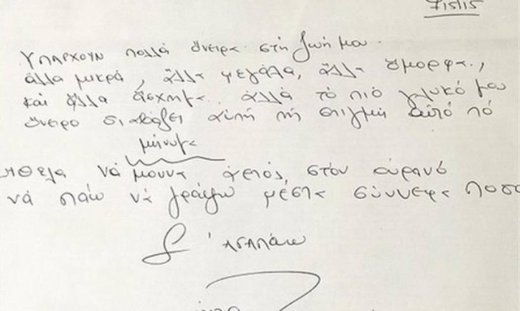 7/5/15
ΥΠΑΡΧΟΥΝ πολλά όνειρα στη ζωή μου.
άλλα μικρά, άλλα μεγάλα, άλλα όμορφα,
και άλλα άσχημα αλλά το πιό γλυκό μου
όνειρο διαβάζει αυτή τη στιγμή αυτό τό
μήνυμα
ήθελα νά μουνα αητός, στον ουρανό
νά πάω νά γράψω μέσα σύννεφα πόσο
Σ' ΑΓΑΠΑΩ